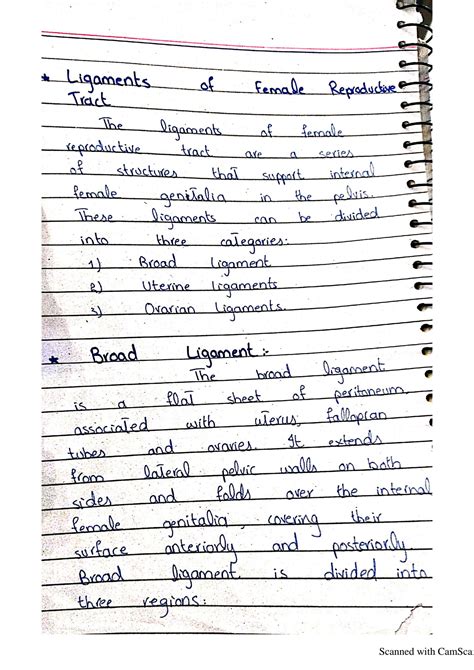 * Ligaments of Female Reproductive
Tract
The ligaments of female
reproductive tract are a series
of structures that support internal
female genitalia in the pelvis.
These ligaments can be divided
into three categories:
1) Broad Ligament
2) Uterine Ligaments
3) Ovarian Ligaments.
* Broad Ligament :-
The broad ligament
is a flat sheet of peritoneum,
associated with uterus, fallopian
tubes and ovaries. It extends
from lateral pelvic walls on both
sides and folds over the internal
female genitalia, covering their
surface anteriorly and posteriorly
Broad ligament is divided into
three regions:
Scanned with CamSca